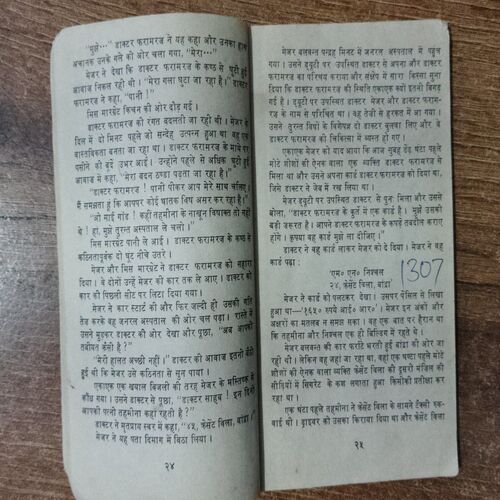 "मुझे—" डाक्टर फरामरज ने यह कहा और उनका हाथ
अचानक उनके गले की ओर चला गया, "मेरा..."
मेजर ने देखा कि डाक्टर फरामरज के कण्ठ से घुटी हुई
आवाज निकल रही थी। "मेरा गला घुटा जा रहा है।" डाक्टर
फरामरज ने कहा, "पानी!"
मिस मारग्रेट किचन की ओर दौड़ गई।
डाक्टर फरामरज की रंगत बदलती जा रही थी। मेजर के
दिल में दो मिनट पहले जो सन्देह उत्पन्न हुआ था वह एक
वास्तविकता बनता जा रहा था। डाक्टर फरामरज के माथे पर
पसीने की बूंदें उभर आईं। उन्होंने पहले से अधिक घुटी हुई
आवाज में कहा, "मेरा बदन ठण्डा पड़ता जा रहा है।"
"डाक्टर फरामरज! पानी पीकर आप मेरे साथ चलिए।
मैं समझता हूं कि आपपर कोई घातक विष असर कर रहा है।"
"ओ माई गॉड! कहीं तहमीना के नाखून विषाक्त तो नहीं
थे! हां, मुझे तुरन्त अस्पताल ले चलो।"
मिस मारग्रेट पानी ले आई। डाक्टर फरामरज के कण्ठ से
कठिनतापूर्वक दो घूंट नीचे उतरे।
मेजर और मिस मारग्रेट ने डाक्टर फरामरज को सहारा
दिया। वे दोनों उन्हें मेजर की कार तक ले आए। डाक्टर को
कार की पिछली सीट पर लिटा दिया गया।
मेजर ने कार स्टार्ट की और फिर जल्दी ही उसकी गति
तेज करके वह जनरल अस्पताल की ओर चल पड़ा। रास्ते में
उसने मुड़कर डाक्टर की ओर देखा और पूछा, "अब आपकी
तबीयत कैसी है?"
"मेरी हालत अच्छी नहीं।" डाक्टर की आवाज इतनी बैठी
हुई थी कि मेजर उसे कठिनता से सुन पाया।
एकाएक एक खयाल बिजली की तरह मेजर के मस्तिष्क में
कौंध गया। उसने डाक्टर से पूछा, "डाक्टर साहब! इन दिनों
आपकी पत्नी तहमीना कहां रहती है?"
डाक्टर ने मृतप्राय स्वर में कहा, "४५, क्रेसेंट विला, बांद्रा।"
मेजर ने यह पता दिमाग में बिठा लिया।
२४
मेजर बलवन्त पन्द्रह मिनट में जनरल अस्पताल में पहुंच
गया। उसने ड्यूटी पर उपस्थित डाक्टर से अपना और डाक्टर
फरामरज का परिचय कराया और संक्षेप में सारा किस्सा सुना
दिया कि डाक्टर फरामरज की स्थिति एकाएक क्यों इतनी बिगड़
गई है। ड्यूटी पर उपस्थित डाक्टर मेजर और डाक्टर फराम-
रज के नाम से परिचित था। वह तेजी से हरकत में आ गया।
उसने तुरन्त विषों के विशेषज्ञ दो डाक्टर बुलवा लिए और वे
डाक्टर फरामरज की चिकित्सा में व्यस्त हो गए।
एकाएक मेजर को याद आया कि आज सुबह डेढ़ घंटा पहले
मोटे शीशों की ऐनक वाला एक व्यक्ति डाक्टर फरामरज से
मिला था और उसने अपना कार्ड डाक्टर फरामरज को दिया था,
जिसे डाक्टर ने जेब में रख लिया था।
मेजर ड्यूटी पर उपस्थित डाक्टर से पुनः मिला और उससे
बोला, "डाक्टर फरामरज के कुर्ते में एक कार्ड है। मुझे उसकी
बड़ी जरूरत है। आपने डाक्टर फरामरज के कपड़े तबदील कराए
होंगे। कृपया वह कार्ड मुझे ला दीजिए।"
डाक्टर ने वह कार्ड लाकर मेजर को दे दिया। मेजर ने वह
कार्ड पढ़ा:
'एम० एन० निश्चल
२४, क्रेसेंट विला, बांद्रा'
1307
मेजर ने कार्ड को पलटकर देखा। उसपर पेंसिल से लिखा
हुआ था—'१६५० रुपये आई० आर०'। मेजर इन अंकों और
अक्षरों का मतलब न समझ सका। वह एक बात पर हैरान था
कि तहमीना और निश्चल एक ही बिल्डिंग में रहते थे।
मेजर बलवन्त की कार फर्राटे भरती हुई बांद्रा की ओर जा
रही थी। लेकिन वह जहां जा रहा था, वहां एक घण्टा पहले मोटे
शीशों की ऐनक वाला व्यक्ति क्रेसेंट विला की दूसरी मंजिल की
सीढ़ियों में सिगरेट के कश लगाता हुआ किसीकी प्रतीक्षा कर
रहा था।
एक घंटा पहले तहमीना ने क्रेसेंट विला के सामने टैक्सी रुक-
वाई थी। ड्राइवर को उसका किराया दिया था और क्रेसेंट विला
२५